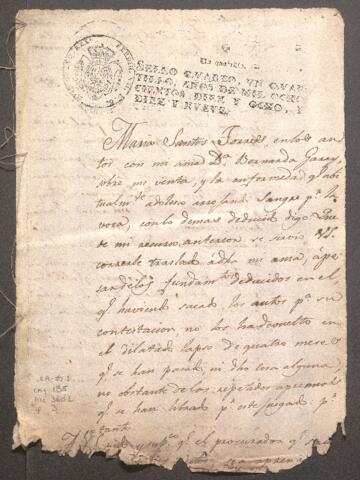 Un quartillo.
SELLO QUARTO, VN QUAR
TILLO, AÑOS DE MIL OCHO
CIENTOS DIEZ Y OCHO, Y
DIEZ Y NUEVE.
Maria Santos Torres, en los au
tos con mi ama Da. Bernarda Garay,
sobre mi venta, y la enfermedad q. ac
tualmte. adolesco arrojando sangre pr. la
voca, con lo demas deducido digo: Que
de mi recurso anterior se sirvio VS.
correrle traslado a dha mi ama, a pe
sar de los fundamtos. deducidos en el,
q. haviendo sacado los autos pa. su
contestacion, no los ha debuelto en
el dilatado lapso de quatro meses
q. se han pasado, ni dho cosa alguna,
no obstante de los repetidos apremios
q. se han librado pr. este juzgado. pr.
tanto
q. el procurador q. saco